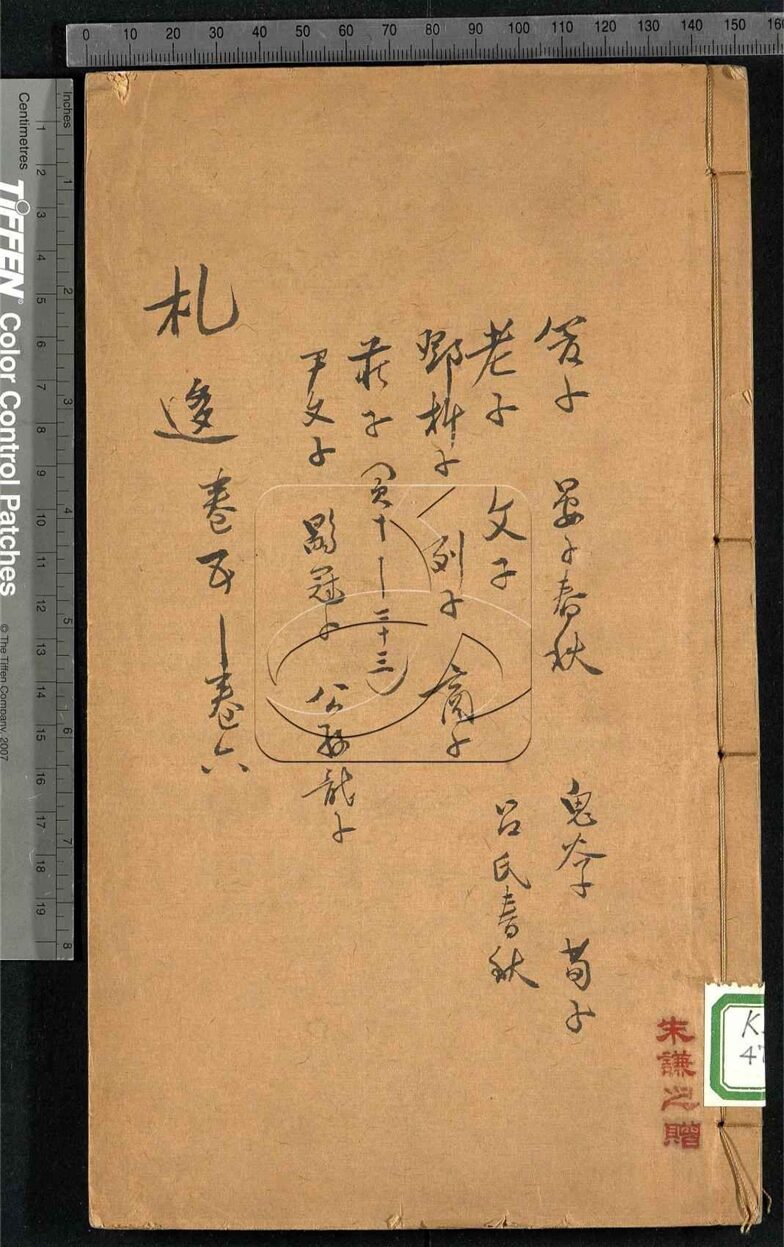 管子 晏子春秋 鬼谷子 荀子
老子 文子 呂氏春秋
鄧析子 列子 商子
莊子（頁十—三十三）
尹文子 鶡冠子 公孫龍子
札迻 卷五—卷六
朱謙之贈
0 10 20 30 40 50 60 70 80 90 100 110 120 130 140 150
Inches
1 2 3 4 5 6 7 8
Centimetres
1 2 3 4 5 6 7 8 9 10 11 12 13 14 15 16 17 18 19
TIFFEN® Color Control Patches
© The Tiffen Company, 2007